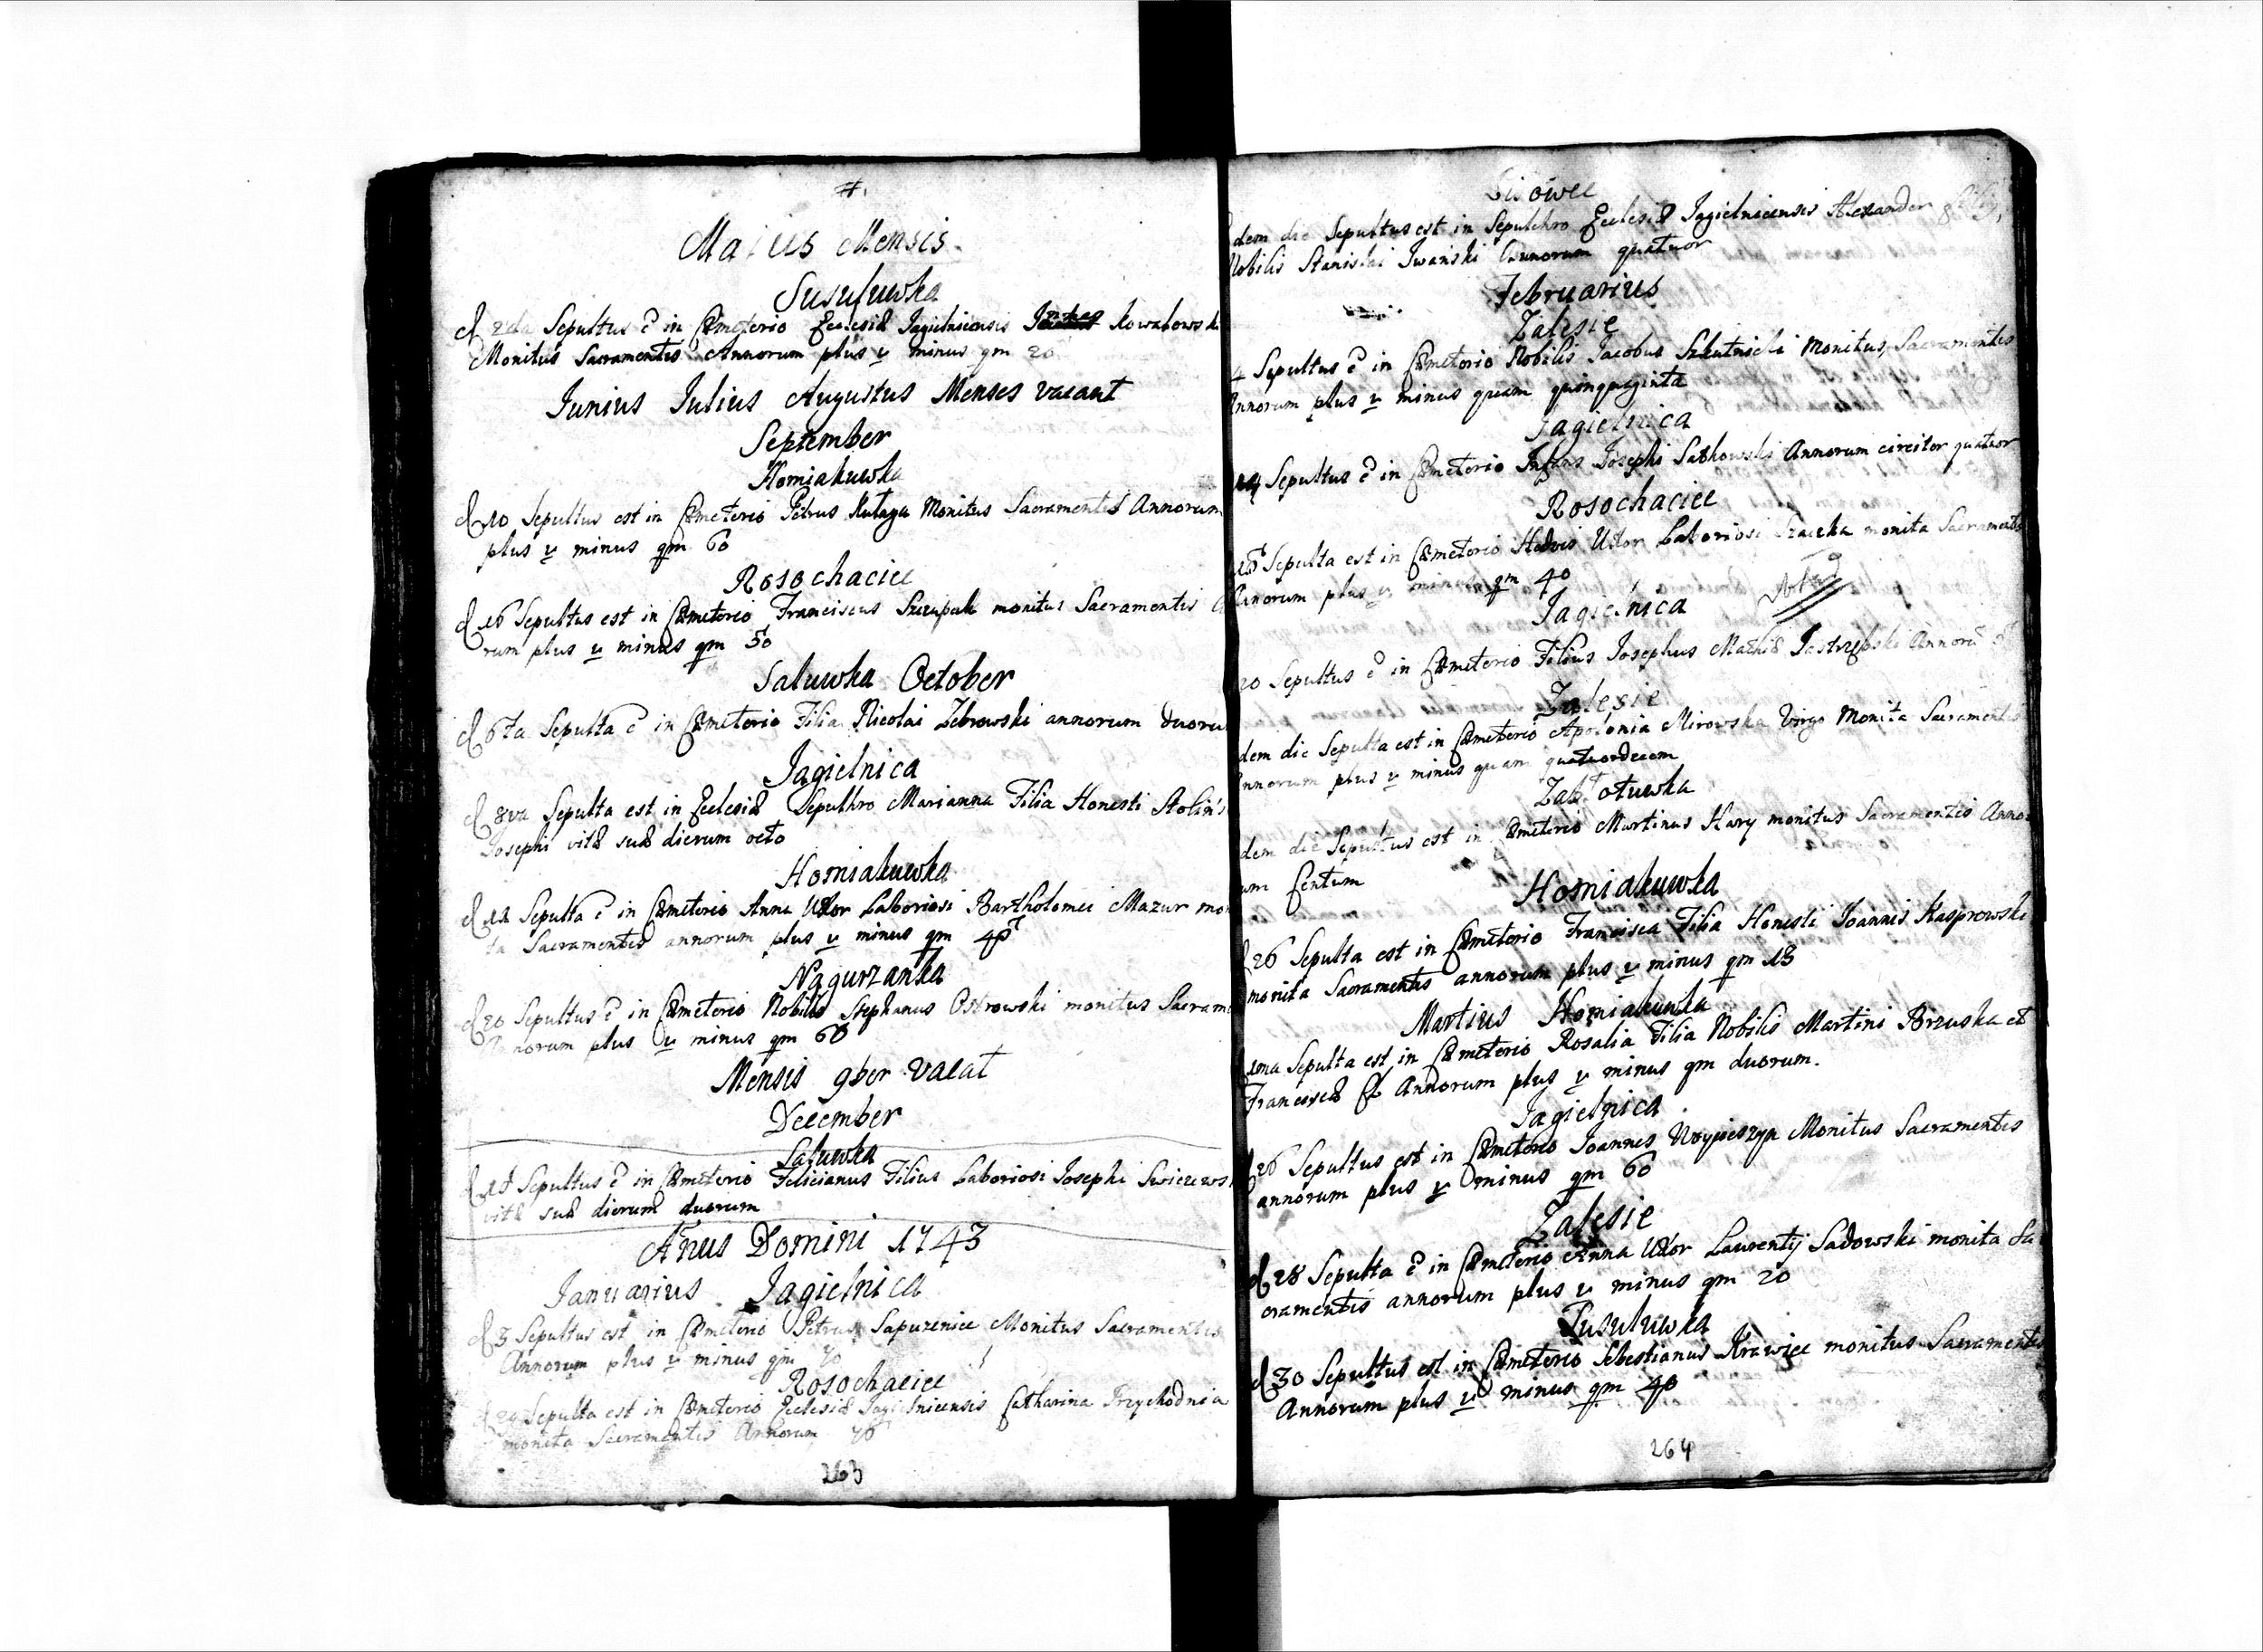 #.
Maius Mensis.
Susułuwka
d 2da Sepultus ē in Cæmeterio Ecclesiæ Jagielnicensis Kowalowski
Monitus Sacramentis Annorum plus v minus qm 20
Junius Julius Augustus Menses vacant
September
Homiakuwka
d 10 Sepultus est in Cæmeterio Petrus Kutaga Monitus Sacramentis Annorum
plus v minus qm 60
Rosochaciec
d 16 Sepultus est in Cæmeterio Franciscus Szczupak monitus Sacramentis
rum plus v minus qm 50
Saluwka October
d 6ta Sepulta ē in Cæmeterio Filia Nicolai Zebrowski annorum duoru
Jagielnica
d 8va Sepulta est in Ecclesiæ Sepulhro Marianna Filia Honesti Stolin's
Josephi vitæ suæ dierum octo
Homiakuwka
d 12 Sepulta ē in Cæmeterio Anna Uxor Laboriosi Bartholomei Mazur mon
ta Sacramentis annorum plus v minus qm
Nagurzanka
d 20 Sepultus ē in Cæmeterio Nobilis Stephanus Ostrowski monitus Sacram
Annorum plus v minus qm 60
Mensis 9ber vacat
December
Saluwka
d Sepultus ē in Cæmeterio Felicianus Filius Laboriosi Josephi Swiczews
vitæ suæ dierum duorum
Añus Domini 1743
Januarius Jagielnica
d 3 Sepultus est in Cæmeterio Petrus Sapuzeniec Monitus Sacramentis
Annorum plus v minus qm 70
Rosochaciec
d 29 Sepulta est in Cæmeterio Ecclesiæ Jagielnicensis Catharina Przychodnia
monita Sacramentis Annorum 70
263
Lisowce
dem die Sepultus est in Sepulchro Ecclesiæ Jagielnicensis Alexander
Nobilis Stanislai Jwanski Annorum quatuor
Februarius
Zalesie
4 Sepultus ē in Cæmeterio Nobilis Jacobus Szkutnicki Monitus Sacramentis
Annorum plus v minus quam quinquaginta
Jagielnica
14 Sepultus ē in Cæmeterio Infans Josephi Sathowski Annorum circiter quatuor
Rosochaciec
Sepulta est in Cæmeterio Hedvis Uxor Laboriosi Szaczka monita Sacramentis
Annorum plus v minus qm 40
Jagielnica
20 Sepultus ē in Cæmeterio Filius Josephus Mathiæ Jastrzębski Annorū
Zalesie
dem die Sepulta est in Cæmeterio Apolonia Mirowska Virgo Monita Sacramentis
Annorum plus v minus quam quatuordecem
Zabłotuwka
dem die Sepultus est in Cæmeterio Martinus Hary monitus Sacramentis Anno
um Centum
Homiakuwka
d 26 Sepulta est in Cæmeterio Francisca Filia Honesti Joannis Kasprowski
monita Sacramentis annorum plus v minus qm 18
Martius Homiakuwka
d 1ma Sepulta est in Cæmeterio Rosalia Filia Nobilis Martini Brzuska et
Franciscæ Annorum plus v minus qm duorum.
Jagielnica
d 26 Sepultus est in Cæmeterio Joannes Woycieszyn Monitus Sacramentis
annorum plus v minus qm 60
Zalesie
d 28 Sepulta ē in Cæmeterio Anna Uxor Laurentij Sadowski monita Sa
cramentis annorum plus v minus qm 20
Susułuwka
d 30 Sepultus est in Cæmeterio Sebestianus Krawiec monitus Sacramentis
Annorum plus v minus qm 40
264